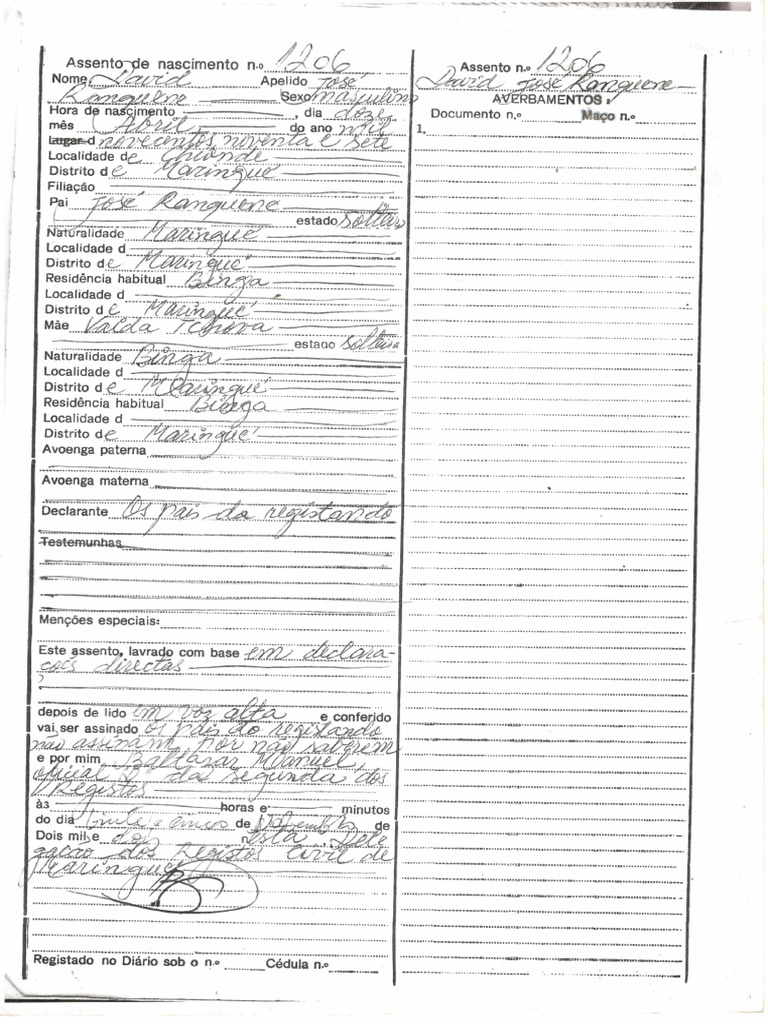 Assento de nascimento n.o 1206
Nome David Apelido José
Ranguene Sexo masculino
Hora de nascimento , dia doze
mês Abril do ano mil
Lugar d novecentos noventa e sete
Localidade de
Distrito de Maringué
Filiação
Pai José Ranguene
estado solteiro
Naturalidade Maringué
Localidade d
Distrito de Maringué
Residência habitual Binga
Localidade d
Distrito de Maringué
Mãe Valda Tchova
estado solteira
Naturalidade Binga
Localidade d
Distrito de Maringué
Residência habitual Binga
Localidade d
Distrito de Maringué
Avoenga paterna
Avoenga materna
Declarante Os pais do registando
Testemunhas
Menções especiais:
Este assento, lavrado com base em declara-
ções directas
depois de lido em voz alta e conferido
vai ser assinado os pais do registando
não assinam por não saberem
e por mim Baltazar Manuel,
oficial da segunda dos
Registos
às horas e minutos
do dia vinte e cinco de de
Dois mil e n esta Dele
gação dos Registos Civil de
Maringué
Registado no Diário sob o n.o Cédula n.o
Assento n.o 1206
David José Ranguene
AVERBAMENTOS:
Documento n.o Maço n.o
1.